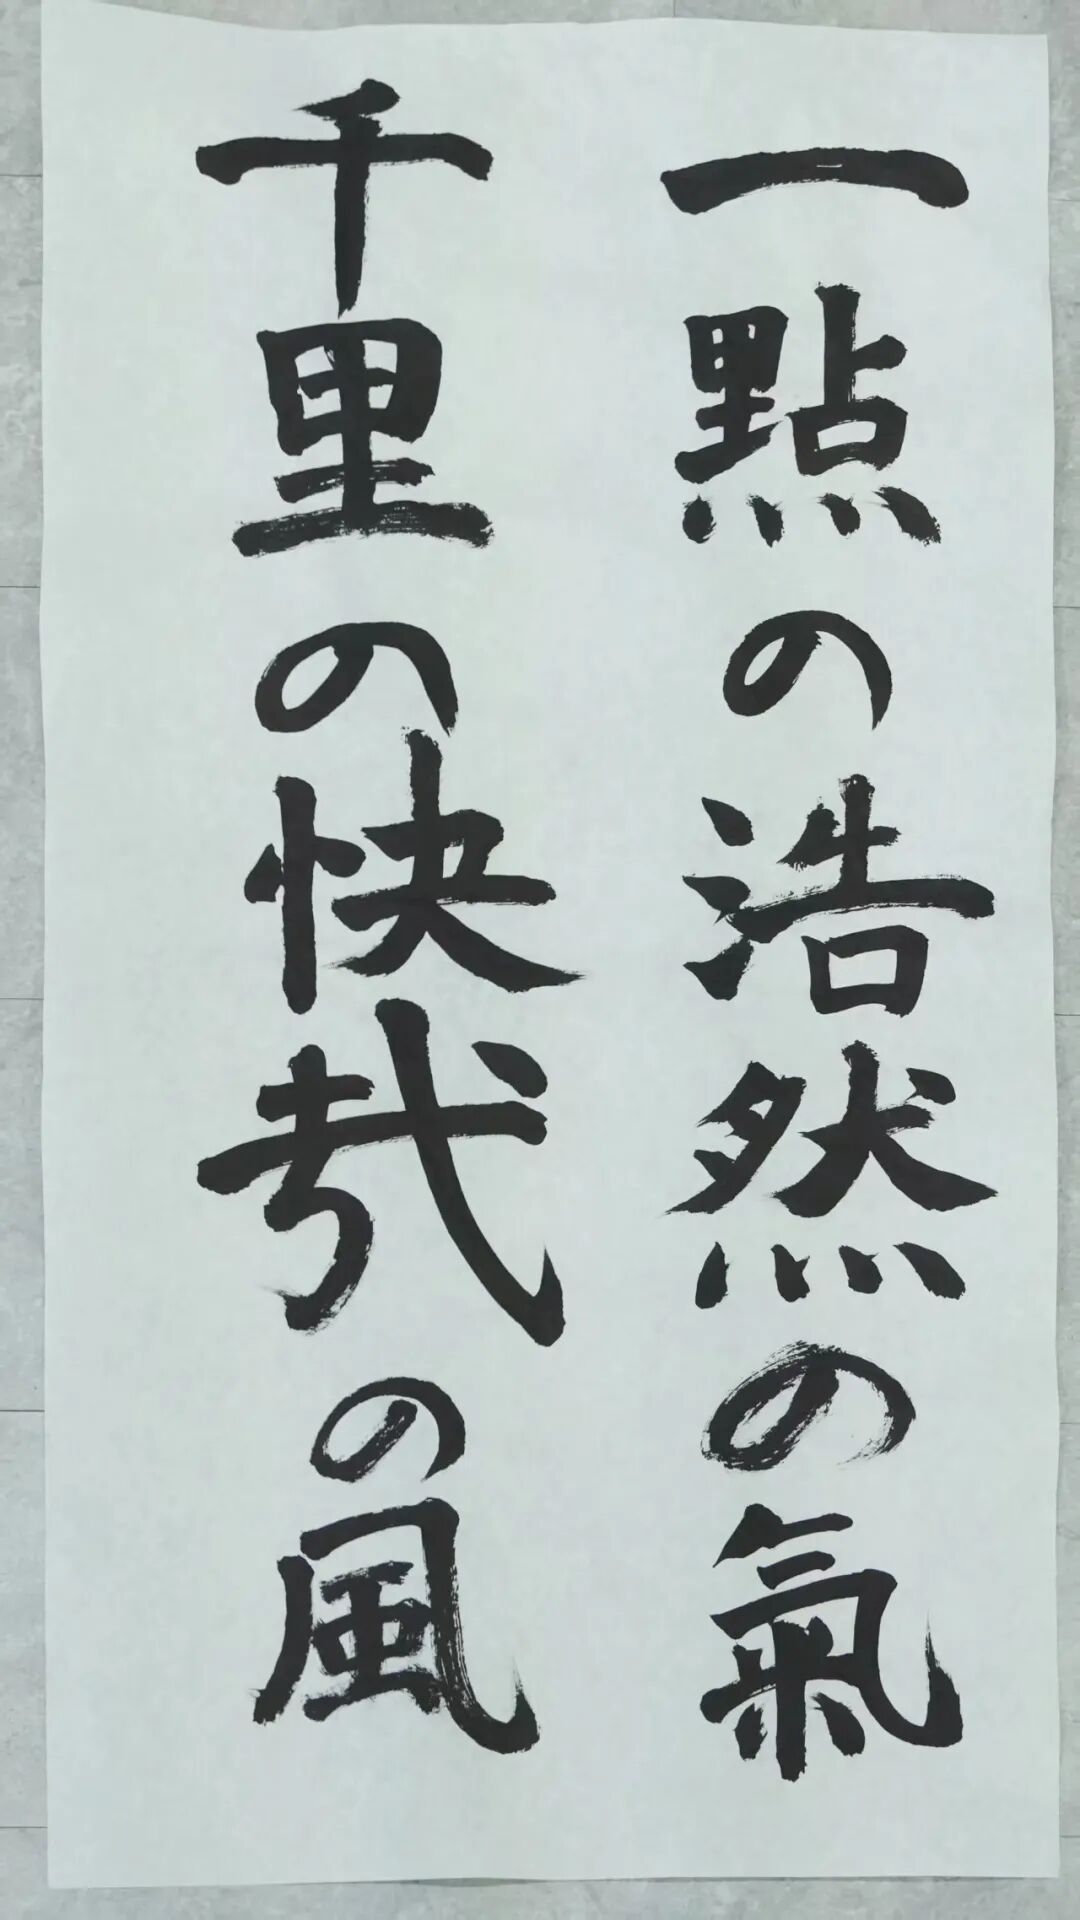 一點の浩然の氣
千里の快哉の風